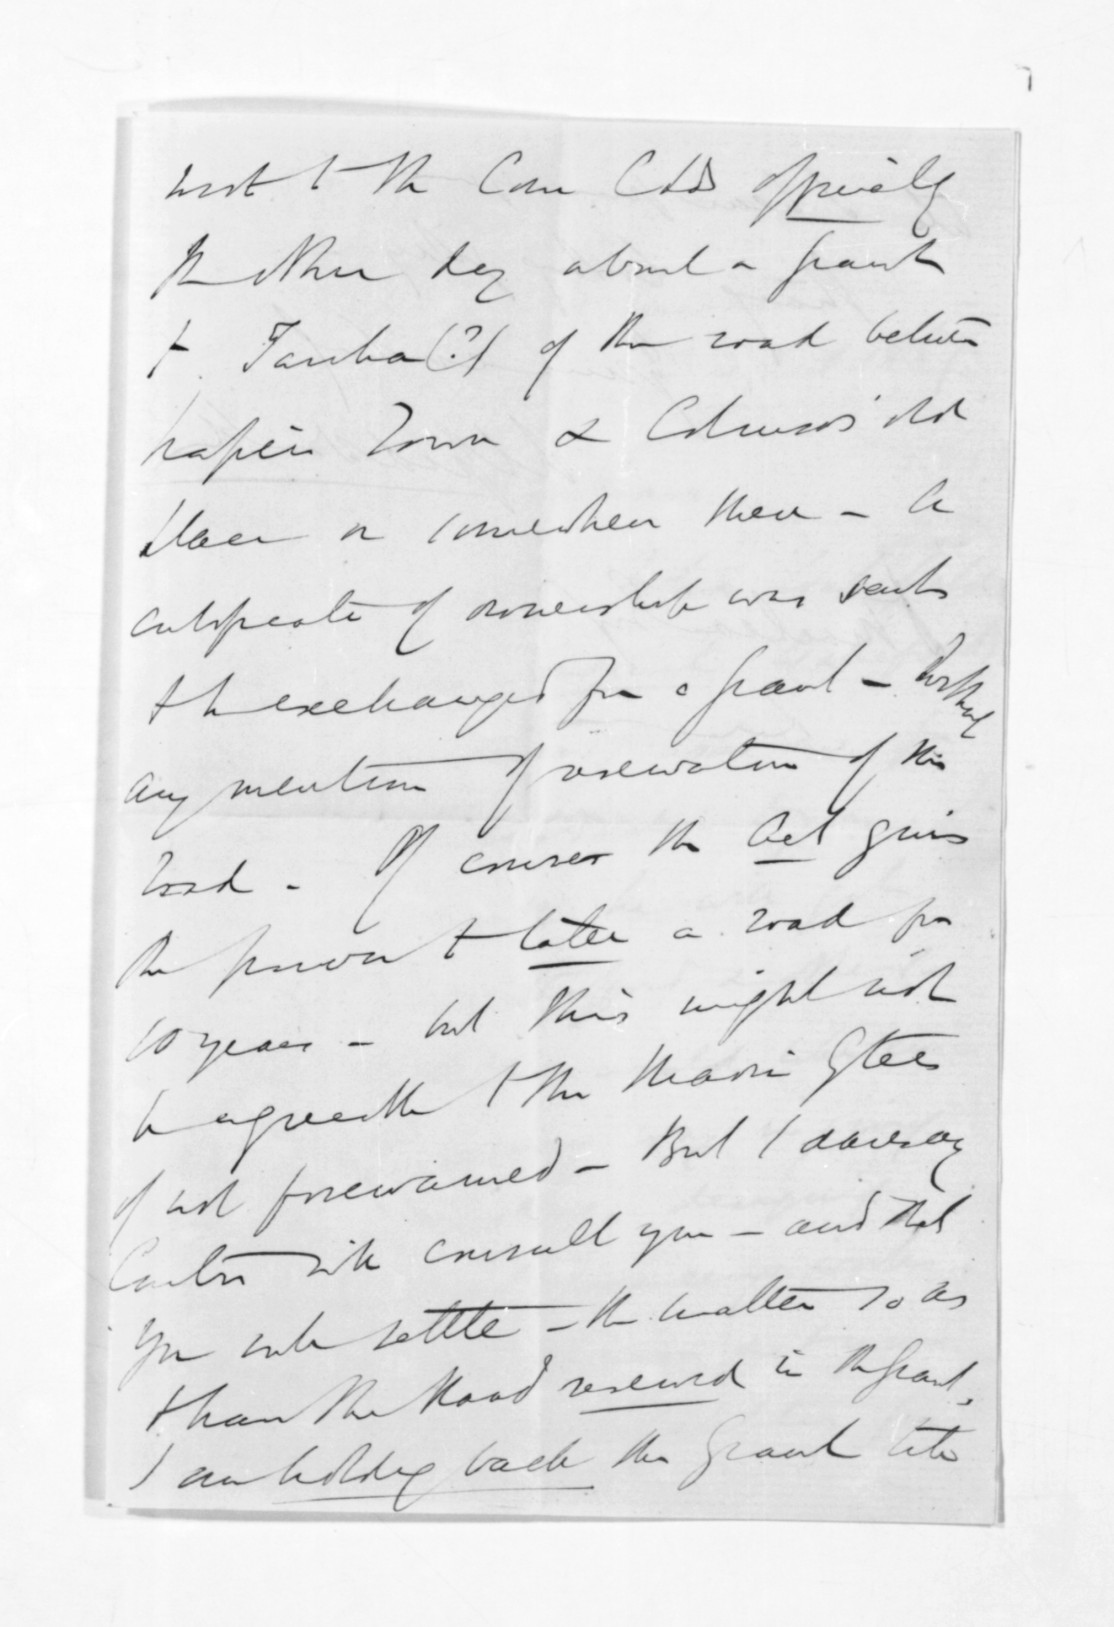 wrote to the Com Clds officially
the other day about a grant
to Tareha (?) of the road between
Napier Town & Colenso's old
place or somewhere there - a
certificate of ownership was sent
to be exchanged for a grant - without
any mention of reservation of this
road - Of course the Act gives
the power to take a road for
10 years - but this might not
be agreeable to the Maori Gtees
if not forewarned - But I daresay
will consult you - and that
you will settle - the matter so as
to have the Road reserved in the Grant.
I am holding back the Grant till